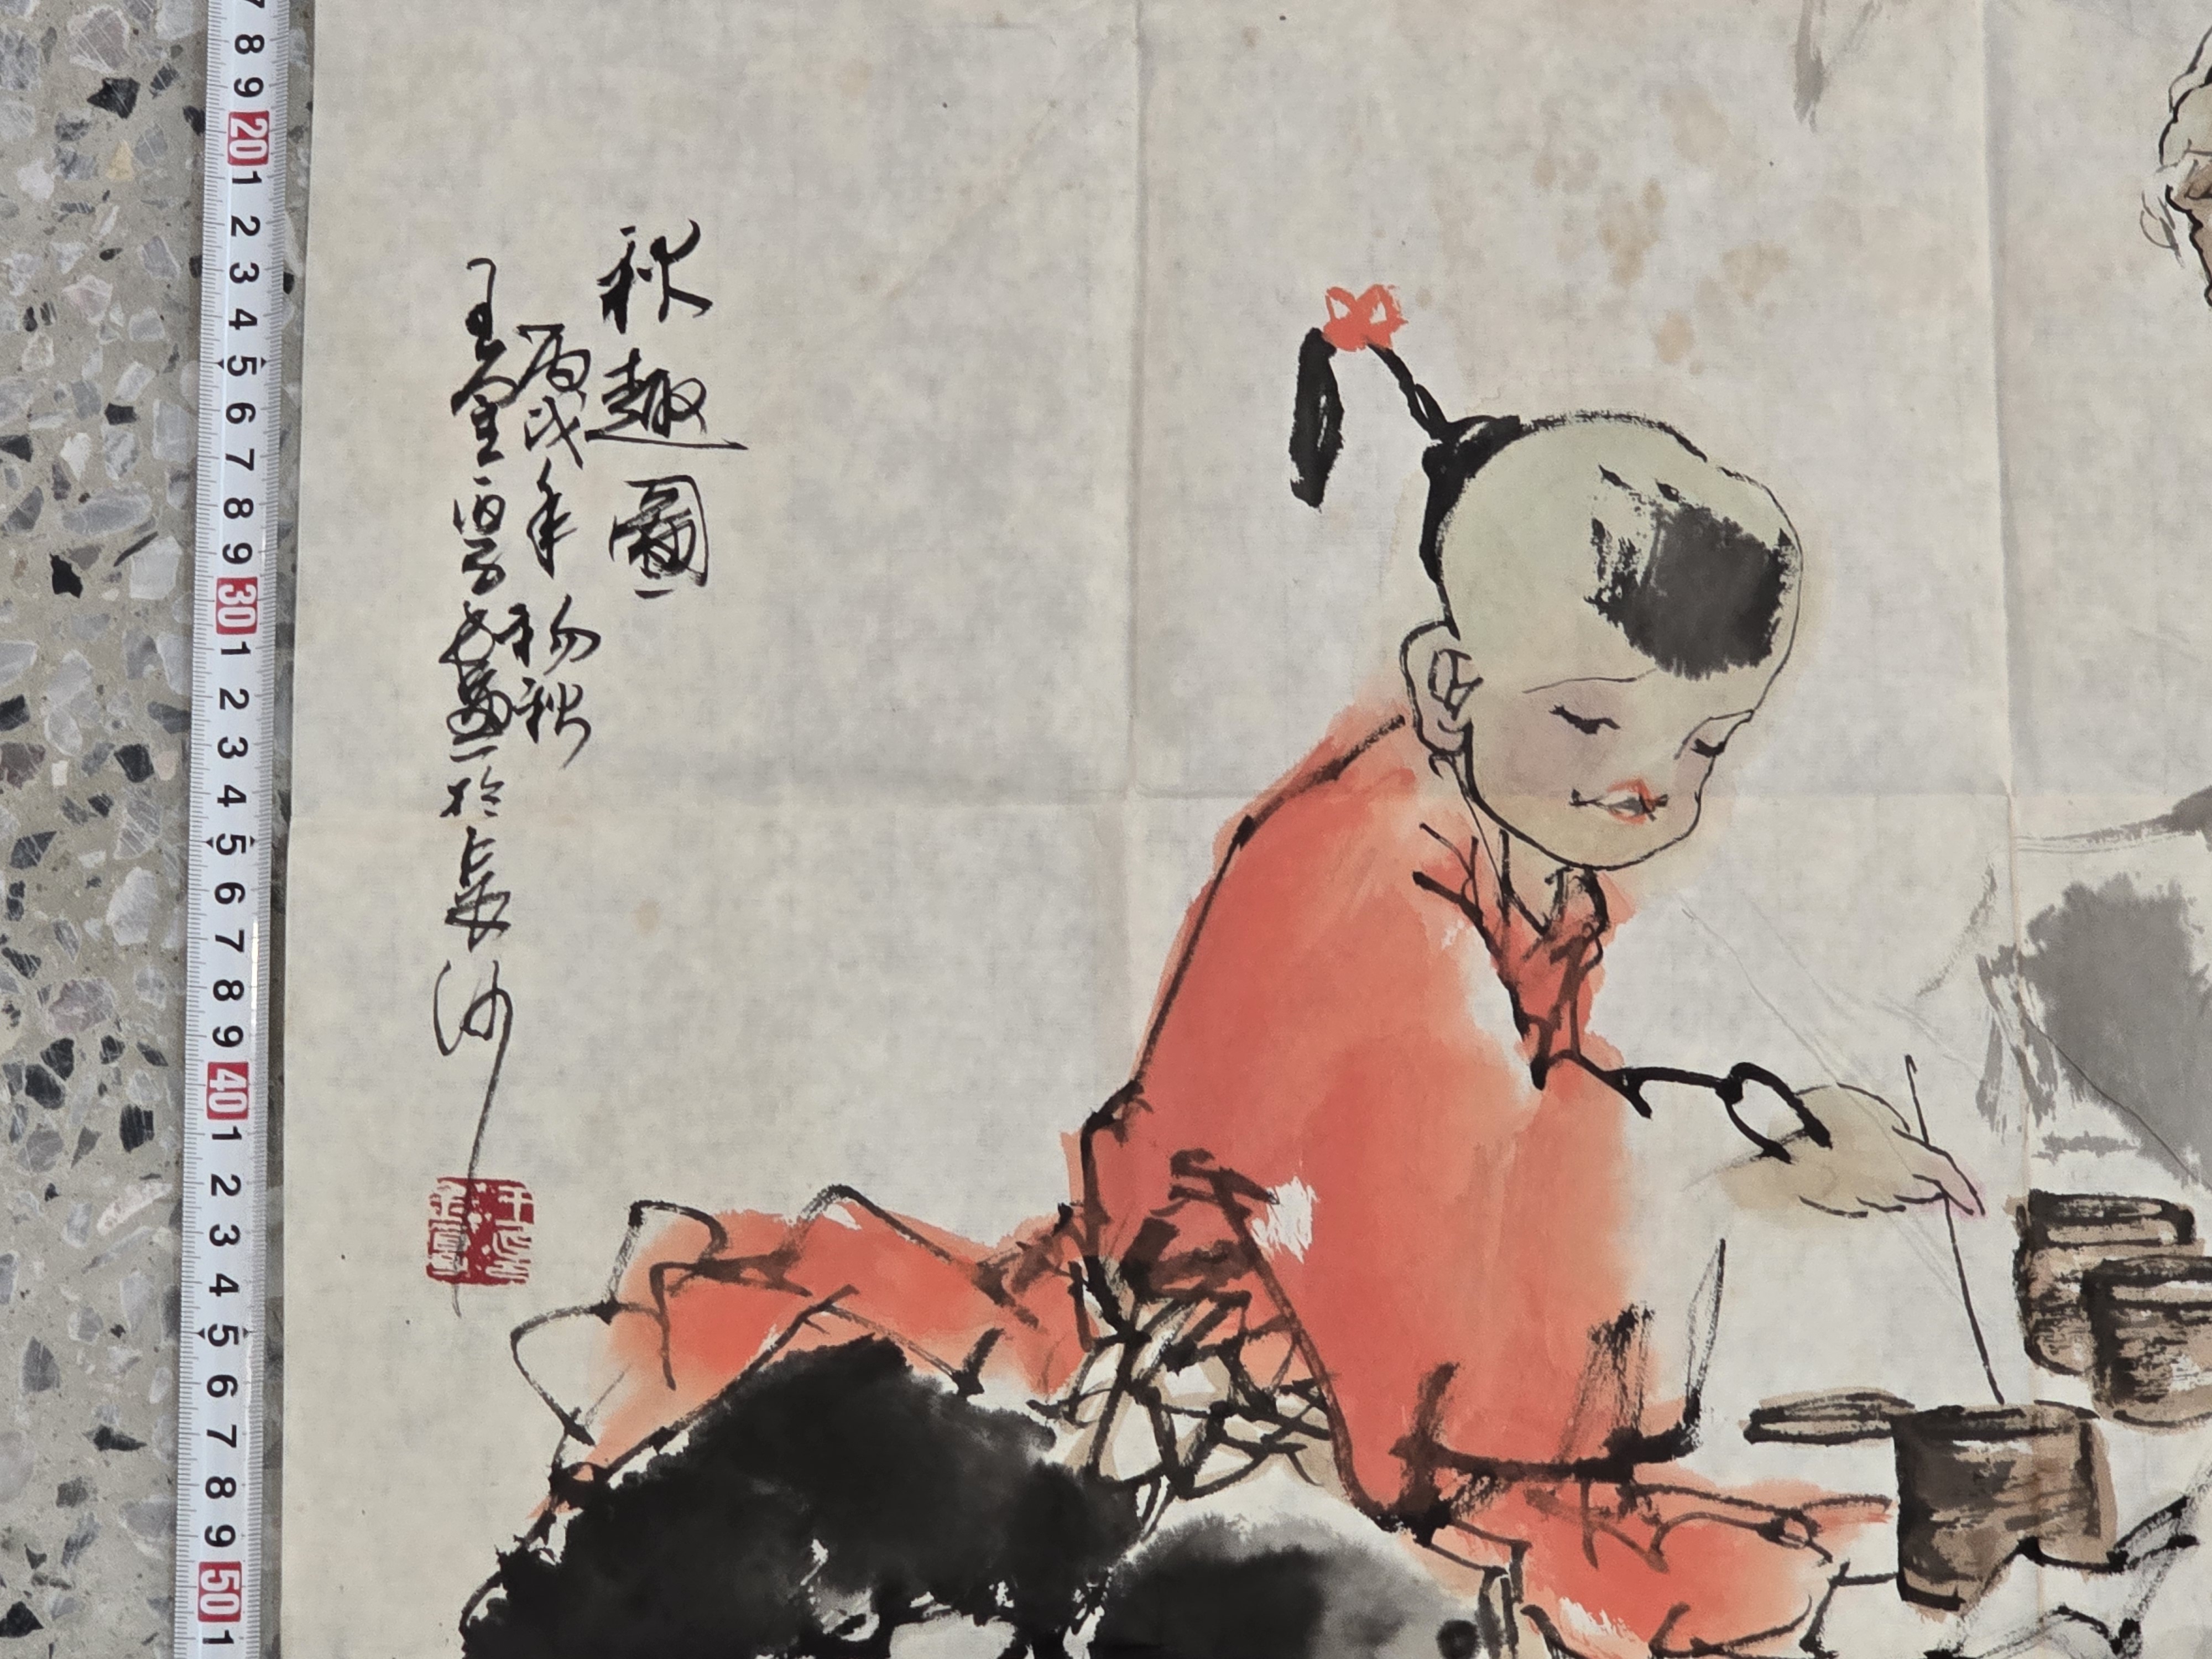 秋趣圖
丙戌年初秋
王金 畫於長沙
8 9 20 1 2 3 4 5 6 7 8 9 30 1 2 3 4 5 6 7 8 9 40 1 2 3 4 5 6 7 8 9 50 1